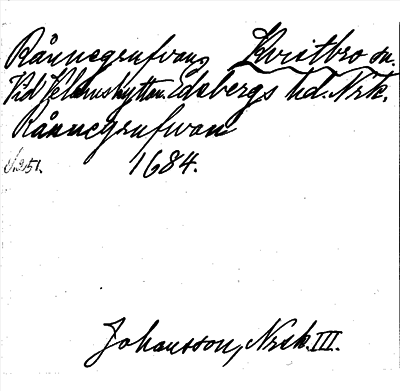 Rånnegrufvan, Kvistbro sn.
Vid Velamshyttan. Edsbergs hd. Nrk.
Rånnegrufwan
1684.
s. 251.
Johansson, Norsk. III.